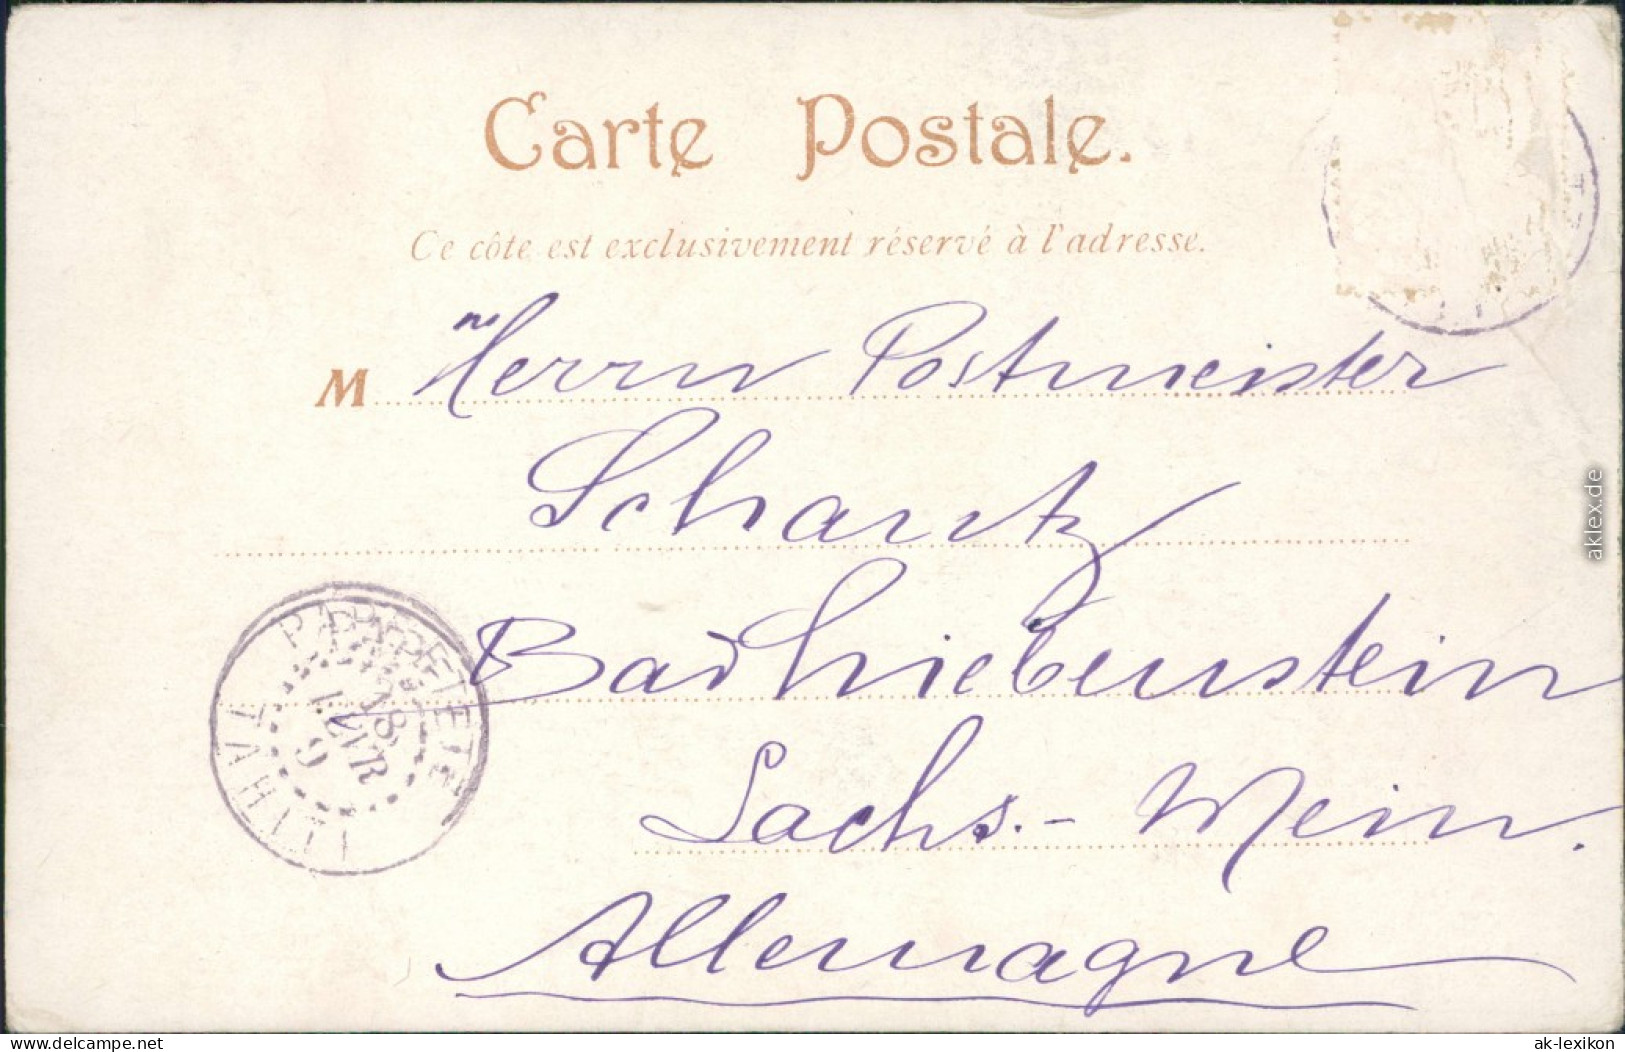 Carte Postale.
Ce côte est exclusivement réservé à l'adresse.
M Herrn Postmeister
Schantz
Bad Liebenstein
Sachs.- Mein.
Allemagne
PAPEETE
18
FEVR
TAHITI
aklex.de
www.delcampe.net
ak-lexikon